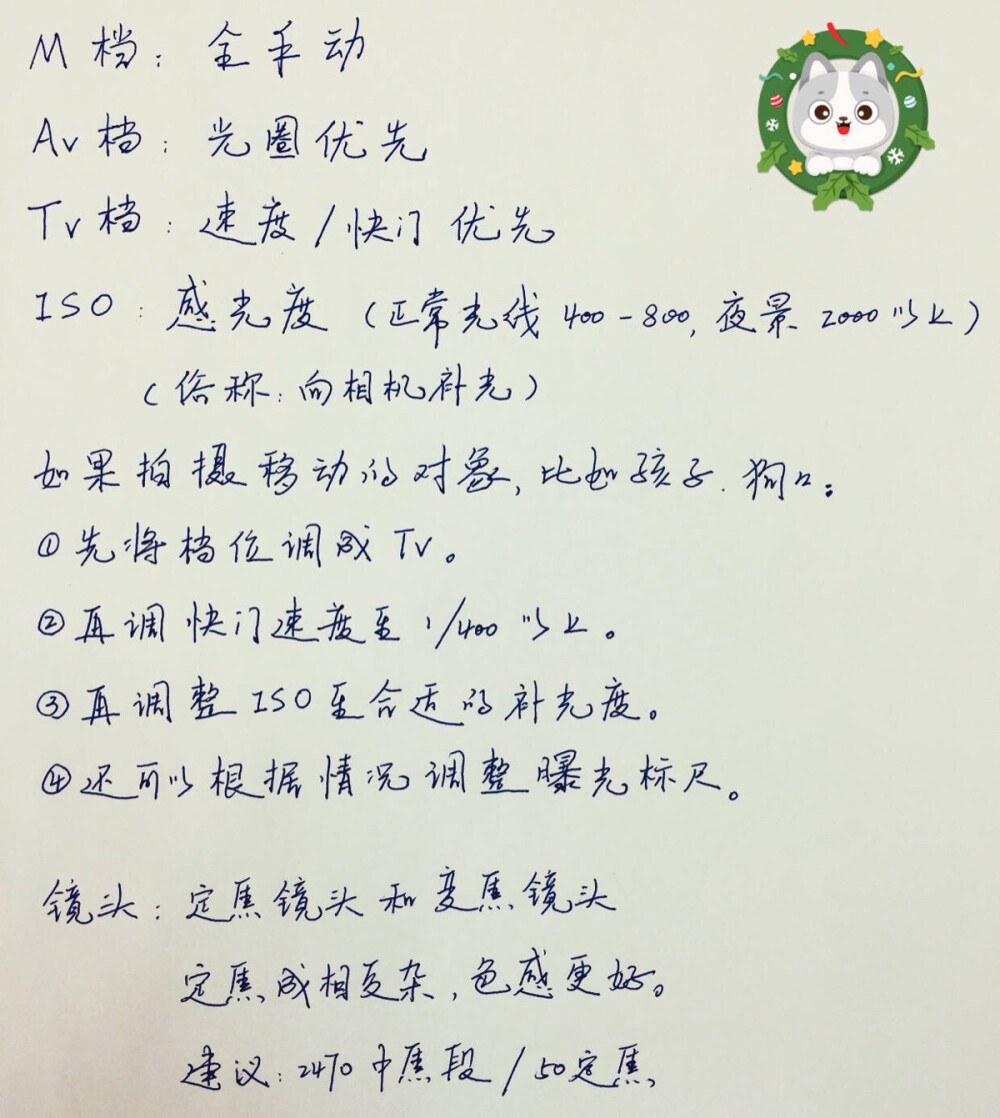 M档：全手动
Av档：光圈优先
Tv档：速度/快门优先
ISO：感光度（正常光线400-800，夜景2000以上）
（俗称：向相机补光）
如果拍摄移动的对象，比如孩子.狗口：
①先将档位调成Tv。
②再调快门速度至1/400以上。
③再调整ISO至合适的补光度。
④还可以根据情况调整曝光标尺。
镜头：定焦镜头和变焦镜头
定焦成相复杂，色感更好。
建议：2470中焦段/50定焦